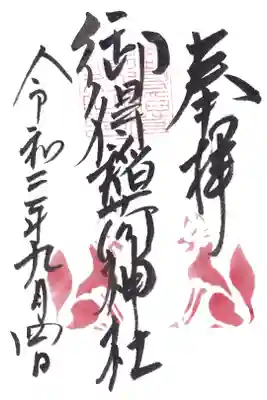 奉拝
御得稲荷神社
令和二年九月四日